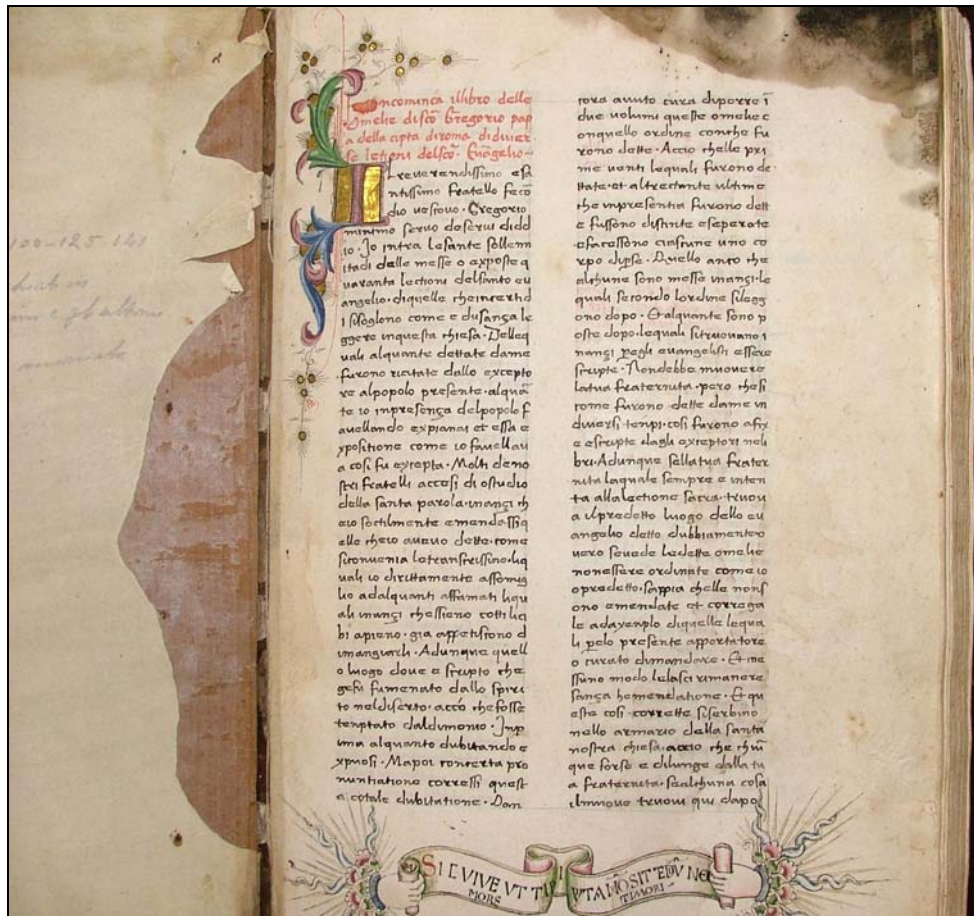 100-125-141
Incominca illibro delle
Omelie discō Gregorio pap
a della cipta diroma didiuer
se letioni delscō. Euāgelio~
Lreuerendissimo esa
ntissimo fratello secō
dio uescouo · Gregorio
minimo seruo deserui didd
io · Io intra lesante sollenn
itadi delle messe o exposte q
uaranta lectioni delsanto eu
angelio · diquelle cheincertid
i sisoglono come e dusança le
ggere inquesta chiesa · Delleq
uali alquante dettate dame
furono ricitate dallo excepto
re alpopolo presente · alquā
te io inpresença delpopolo f
auellando expianai et essa e
xpositione come io fauellau
a cosi fu excepta · Molti deno
stri fratelli accesi di ostudio
della santa parola · inançi ch
eio soctilmente emendassiq
elle cheio aueuo dette · come
siconuenia letranscrissino · liq
uali io dirittamente assomig
lio adalquanti affamati liqu
ali inançi chessieno cotti lici
bi apieno · gia appetiscono d
imangiarli · Adunque quell
o luogo doue e scripto che
gesu fumenato dallo spiri
to neldiserto · acciò chefosse
tenptato daldimonio · Inpr
ima alquanto dubitando e
xpuosi · Mapoi concerta pro
nuntiatione corressi quest
a cotale dubitatione · Dan
cora auuto cura diporre ī
due uolumi queste omelie c
onquello ordine conche fu
rono dette · Accio chelle pri
me uenti lequali furono de
ttate · et altrectante ultime
che inpresentia furono dett
e fussono distinte eseperate
efacessono ciascune uno co
rpo dipse · Quello anco che
alchune sono messe inançi · le
quali secondo lordine silegg
ono dopo · Et alquante sono p
oste dopo · lequali sitruouano i
nançi pegli euangelisti essere
scripte · Nondebbe muouere
latua fraternita · pero chesi
come furono dette dame in
diuersi tenpi · cosi furono afix
e escripte dagli exceptori neli
bri · Adunque sellatua frater
nita laquale sempre e inten
ta allalectione sacra · truou
a ilpredetto luogo dello eu
angelio detto dubbiamente o
uero seuede ledette omelie
nonessere ordinate come io
o predetto · sappia chelle nons
ono emendate et correga
le adaxenplo diquelle lequa
li pelo presente apportatore
o curato dimandare · Et ine
ssuno modo lelasci rimanere
sança hemendatione · Et qu
este cosi corrette siserbino
nello armario della santa
nostra chiesa · accio che chiū
que forse e dilunge dalla tu
a fraternita · sealthuna cosa
ilmuoue truoui qui dapo
SIC VIVE VT TIBI VITA NŌ SIT TEDIV̄ NE
MORS TIMORI